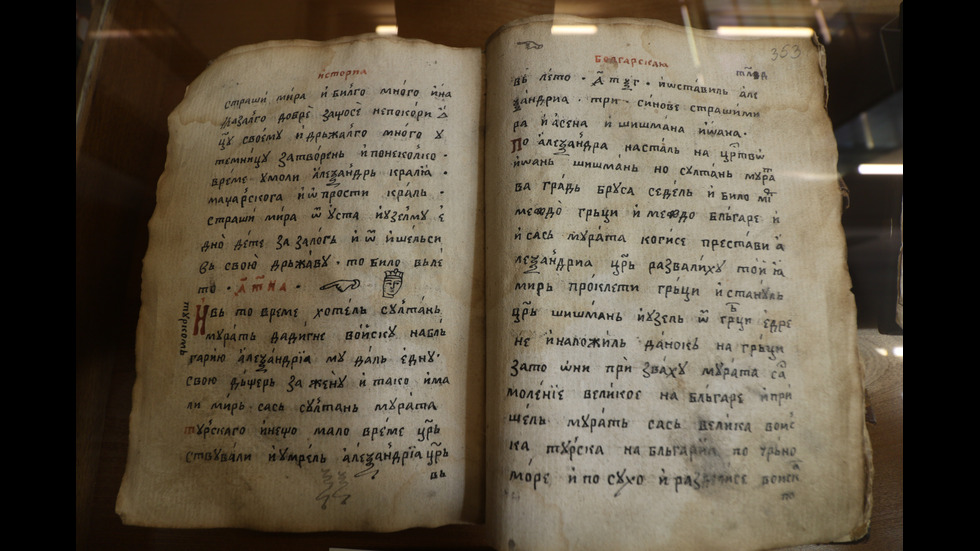 исторїа
страши мира и било много и на
Дръжалго добрѣ защосѐ непокори
цꙋ своемꙋ и дръжалго много ꙋ
темницꙋ затворень и понеколко ·
време ꙋмоли Алеѯандрь кралꙗ ·
мачарскога и ѿпрости краль ·
страши мира ѿ ꙋста и ꙋземꙋ е
дно дете за залогь и ѿ ишельси
вь свою дрьжавꙋ · то било вьле
то ·
Ивь то време хотель сꙋлтань
мꙋрать дадигне воискꙋ на бль
гарию алеѯандрїа мꙋ даль еднꙋ ·
свою дьщерь за женꙋ и тако има
ли мирь сась сꙋлтань мꙋрата
тꙋрскаго инещо мало време црь
ствꙋвали и ꙋмрель алеѯандрїа црь
вь
тꙋрсомь
353
Болгарскаꙗ
вь лето · иѡставиль але
ѯандриа · три · синове страшими
ра и асена и шишмана иѡана ·
По алеѯандра насталь на цртво
иѡань шишмань но сꙋлтань мꙋра
ва градь брꙋса седель и било
междо грьци и междо бльгаре и
и сась мꙋрата когисе престави а
леѯандриа црь развалихꙋ тои
мирь проклети грьци и стануль
црь шишмань и ꙋзель ѿ грци едре
не и наложиль данокь на грьци
зато ѡни при зваху мꙋрата са
моленїе великое на бльгаре и при
шель мꙋрать сась велика воис
ка тꙋрска на бльгариа по
море и по сꙋхо и воиска
по